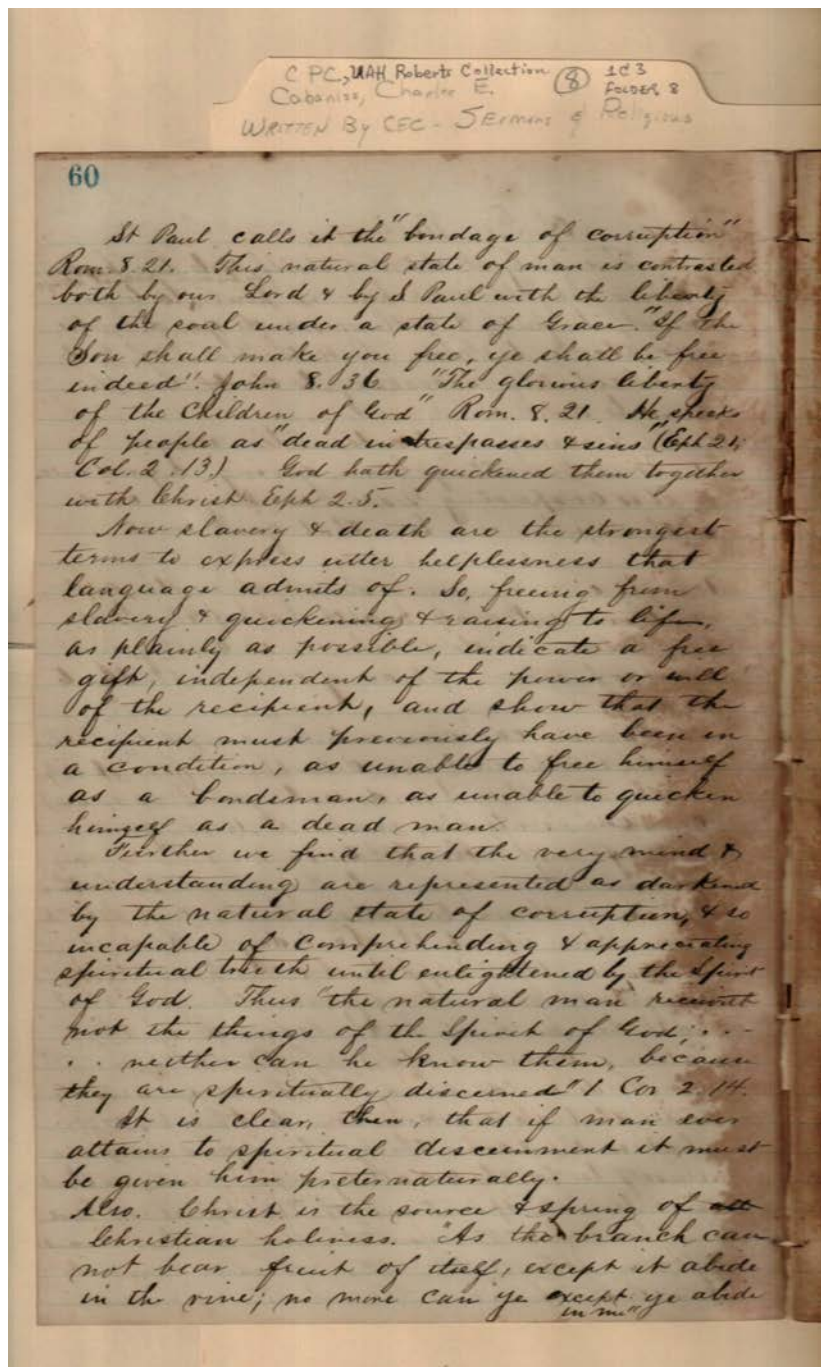 C PC, UAH Roberts Collection (8) 1C3
Cabaniss, Charles E. FOLDER 8
WRITTEN By CEC - SERMONS & Religious
60
St Paul calls it the "bondage of corruption"
Rom. 8.21. This natural state of man is contrasted
both by our Lord & by S Paul with the liberty
of the soul under a state of Grace. "If the
Son shall make you free, ye shall be free
indeed". John 8.36 "The glorious liberty
of the Children of God" Rom. 8.21. He speaks
of people as "dead in trespasses & sins" (Eph 2.1;
Col. 2.13.) God hath quickened them together
with Christ Eph 2.5.
Now slavery & death are the strongest
terms to express utter helplessness that
language admits of. So, freeing from
slavery & quickening & raising to life,
as plainly as possible, indicate a free
gift, independent of the power or will
of the recipient, and show that the
recipient must previously have been in
a condition, as unable to free himself
as a bondsman, as unable to quicken
himself as a dead man.
Further we find that the very mind &
understanding are represented as darkened
by the natural state of corruption, & so
incapable of comprehending & appreciating
spiritual truth until enlightened by the Spirit
of God. Thus "the natural man receiveth
not the things of the Spirit of God; . . .
. . neither can he know them, because
they are spiritually discerned" 1 Cor 2.14.
It is clear, then, that if man ever
attains to spiritual discernment it must
be given him preternaturally.
Also. Christ is the source & spring of all
Christian holiness. "As the branch can
not bear fruit of itself, except it abide
in the vine; no more can ye except ye abide
in me"